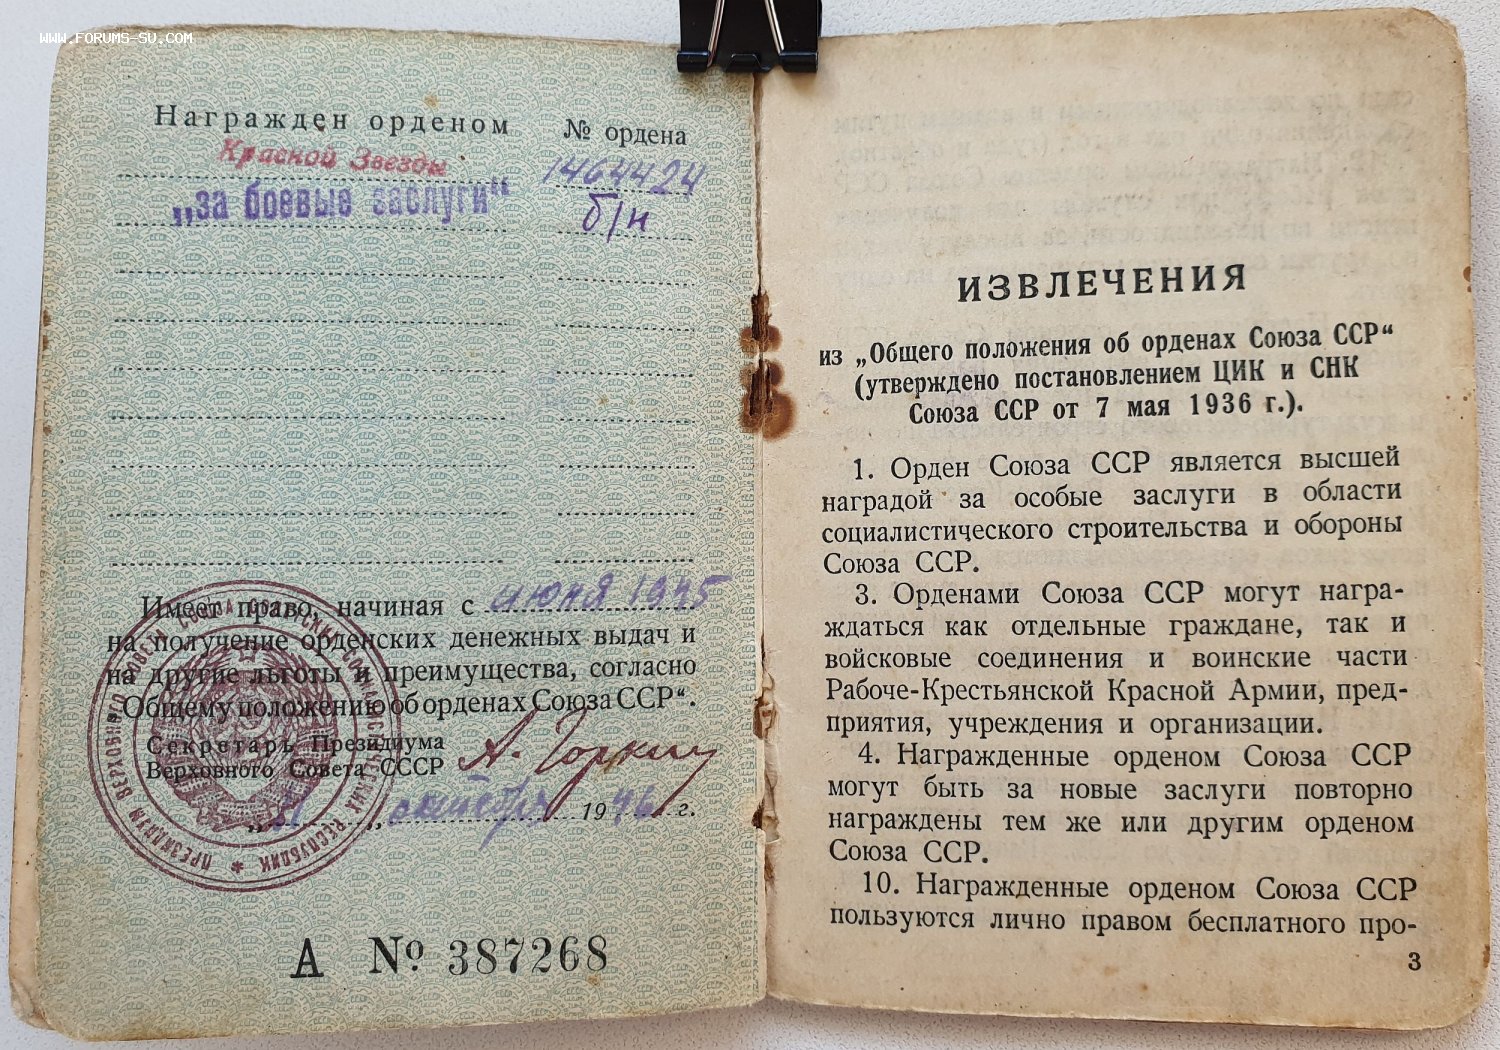 WWW.FORUMS-SU.COM
Награжден орденом № ордена
Красной Звезды 1464424
„за боевые заслуги“ б/н
Имеет право, начиная с июня 1945
на получение орденских денежных выдач и
на другие льготы и преимущества, согласно
„Общему положению об орденах Союза ССР“.
Секретарь Президиума
Верховного Совета СССР А. Горкин
октября 1946 г.
ПРЕЗИДИУМ ВЕРХОВНОГО СОВЕТА СОЮЗА СОВЕТСКИХ СОЦИАЛИСТИЧЕСКИХ РЕСПУБЛИК
А № 387268
ИЗВЛЕЧЕНИЯ
из „Общего положения об орденах Союза ССР“
(утверждено постановлением ЦИК и СНК
Союза ССР от 7 мая 1936 г.).
1. Орден Союза ССР является высшей
наградой за особые заслуги в области
социалистического строительства и обороны
Союза ССР.
3. Орденами Союза ССР могут награ-
ждаться как отдельные граждане, так и
войсковые соединения и воинские части
Рабоче-Крестьянской Красной Армии, пред-
приятия, учреждения и организации.
4. Награжденные орденом Союза ССР
могут быть за новые заслуги повторно
награждены тем же или другим орденом
Союза ССР.
10. Награжденные орденом Союза ССР
пользуются лично правом бесплатного про-
3